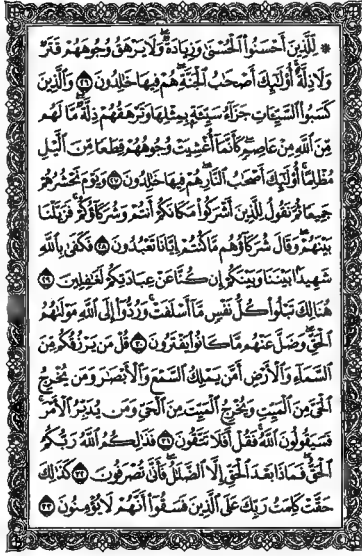 ۞ لِّلَّذِينَ أَحْسَنُوا۟ ٱلْحُسْنَىٰ وَزِيَادَةٌ ۖ وَلَا يَرْهَقُ وُجُوهَهُمْ قَتَرٌ
وَلَا ذِلَّةٌ ۚ أُو۟لَٰٓئِكَ أَصْحَٰبُ ٱلْجَنَّةِ ۖ هُمْ فِيهَا خَٰلِدُونَ ٢٦ وَٱلَّذِينَ
كَسَبُوا۟ ٱلسَّيِّـَٔاتِ جَزَآءُ سَيِّئَةٍۭ بِمِثْلِهَا وَتَرْهَقُهُمْ ذِلَّةٌ ۖ مَّا لَهُم
مِّنَ ٱللَّهِ مِنْ عَاصِمٍ ۖ كَأَنَّمَآ أُغْشِيَتْ وُجُوهُهُمْ قِطَعًا مِّنَ ٱلَّيْلِ
مُظْلِمًا ۚ أُو۟لَٰٓئِكَ أَصْحَٰبُ ٱلنَّارِ ۖ هُمْ فِيهَا خَٰلِدُونَ ٢٧ وَيَوْمَ نَحْشُرُهُمْ
جَمِيعًا ثُمَّ نَقُولُ لِلَّذِينَ أَشْرَكُوا۟ مَكَانَكُمْ أَنتُمْ وَشُرَكَآؤُكُمْ ۚ فَزَيَّلْنَا
بَيْنَهُمْ ۖ وَقَالَ شُرَكَآؤُهُم مَّا كُنتُمْ إِيَّانَا تَعْبُدُونَ ٢٨ فَكَفَىٰ بِٱللَّهِ
شَهِيدًۢا بَيْنَنَا وَبَيْنَكُمْ إِن كُنَّا عَنْ عِبَادَتِكُمْ لَغَٰفِلِينَ ٢٩
هُنَالِكَ تَبْلُوا۟ كُلُّ نَفْسٍ مَّآ أَسْلَفَتْ ۚ وَرُدُّوٓا۟ إِلَى ٱللَّهِ مَوْلَىٰهُمُ
ٱلْحَقِّ ۖ وَضَلَّ عَنْهُم مَّا كَانُوا۟ يَفْتَرُونَ ٣٠ قُلْ مَن يَرْزُقُكُم مِّنَ
ٱلسَّمَآءِ وَٱلْأَرْضِ أَمَّن يَمْلِكُ ٱلسَّمْعَ وَٱلْأَبْصَٰرَ وَمَن يُخْرِجُ
ٱلْحَىَّ مِنَ ٱلْمَيِّتِ وَيُخْرِجُ ٱلْمَيِّتَ مِنَ ٱلْحَىِّ وَمَن يُدَبِّرُ ٱلْأَمْرَ ۚ
فَسَيَقُولُونَ ٱللَّهُ ۚ فَقُلْ أَفَلَا تَتَّقُونَ ٣١ فَذَٰلِكُمُ ٱللَّهُ رَبُّكُمُ
ٱلْحَقُّ ۖ فَمَاذَا بَعْدَ ٱلْحَقِّ إِلَّا ٱلضَّلَٰلُ ۖ فَأَنَّىٰ تُصْرَفُونَ ٣٢ كَذَٰلِكَ
حَقَّتْ كَلِمَتُ رَبِّكَ عَلَى ٱلَّذِينَ فَسَقُوٓا۟ أَنَّهُمْ لَا يُؤْمِنُونَ ٣٣